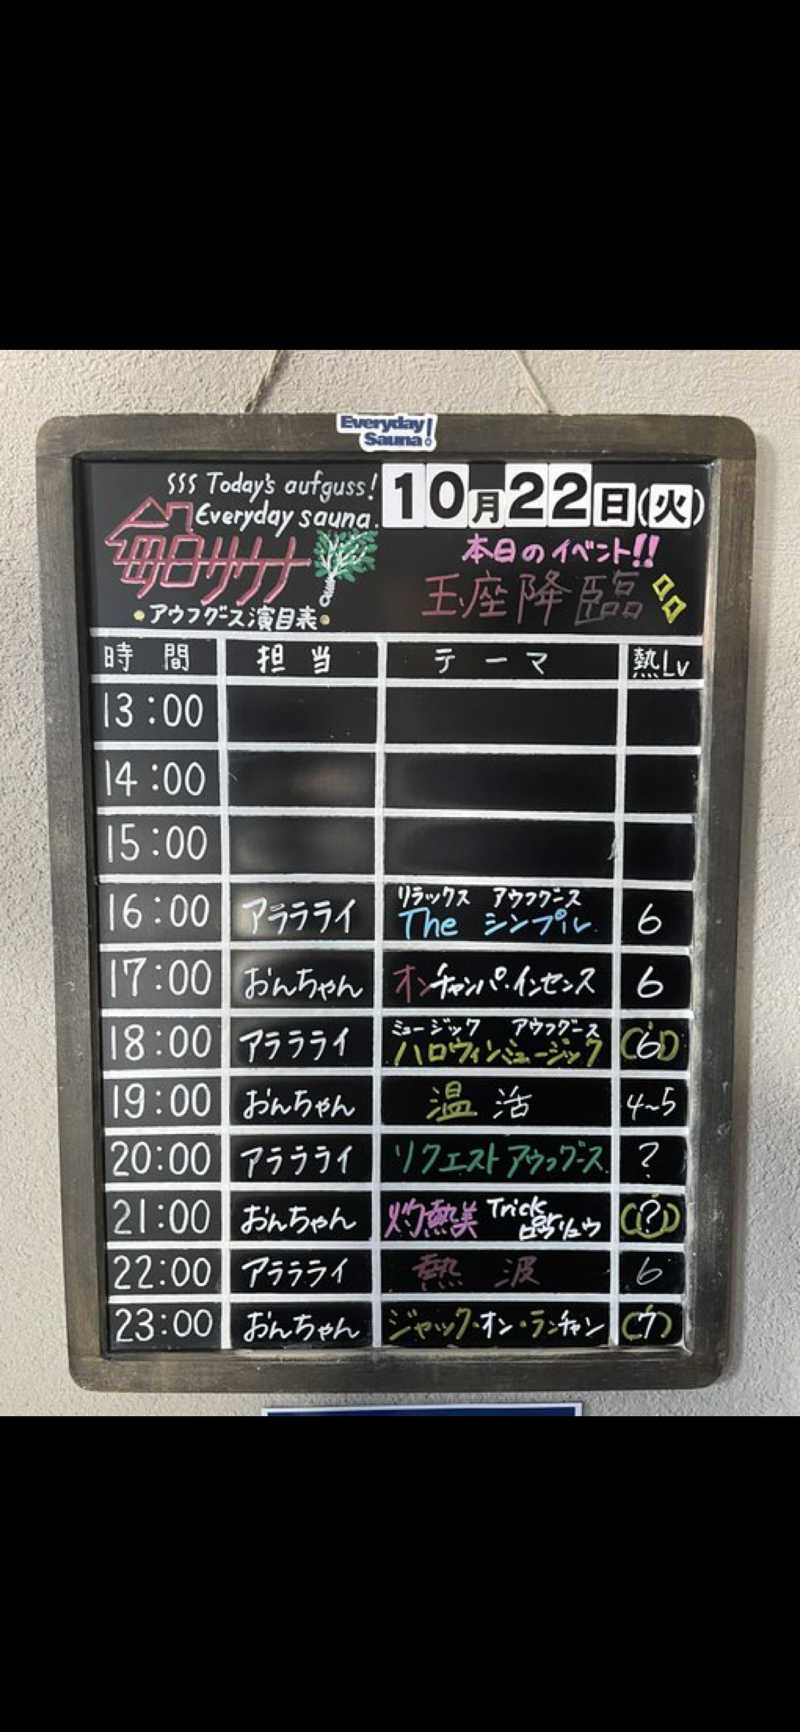 Everyday
Sauna!
Today's aufguss!
Everyday sauna.
毎日サウナ
アウフグース演目表
10月22日(火)
本日のイベント!!
玉座降臨
時間 担当 テーマ 熱Lv
13:00
14:00
15:00
16:00 アラララライ リラックス アウフグース The シンプル 6
17:00 おんちゃん オンチャンパ・インセンス 6
18:00 アラララライ ミュージック アウフグース ハロウィンミュージック 6
19:00 おんちゃん 温活 4~5
20:00 アラララライ リクエストアウフグース ?
21:00 おんちゃん 灼熱美 Trick リュウ ?
22:00 アラララライ 熱波 6
23:00 おんちゃん ジャック・オン・ランチャン (7)